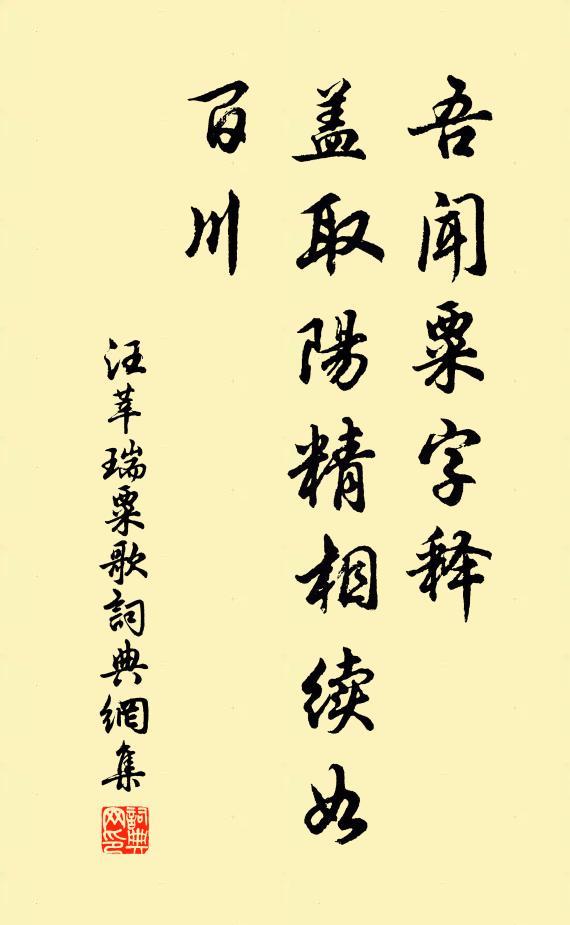 吾闻粟字释
盖取陽精相续如
百川
汪莘瑞粟歌詞典網集
詞典
网印